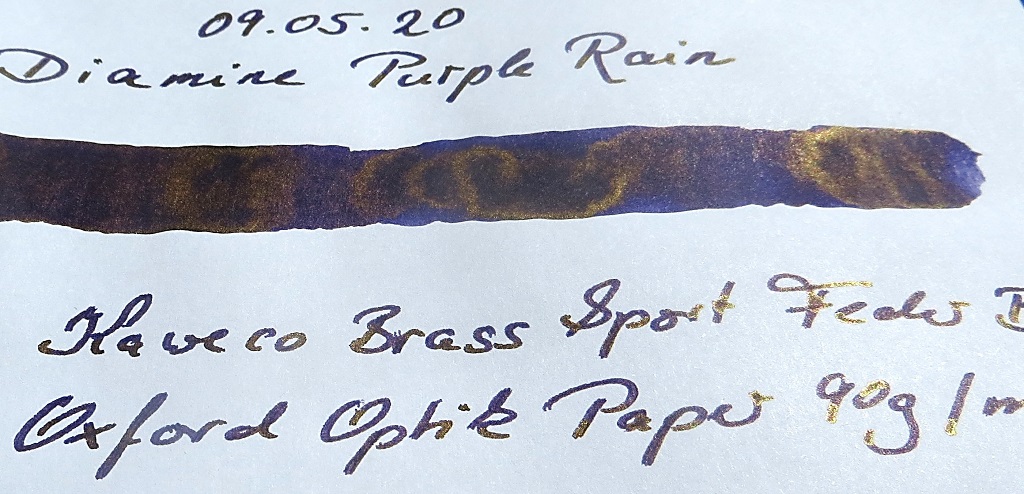 09.05.20
Diamine Purple Rain
Kaweco Brass Sport Feder B
Oxford Optik Paper 90g/m